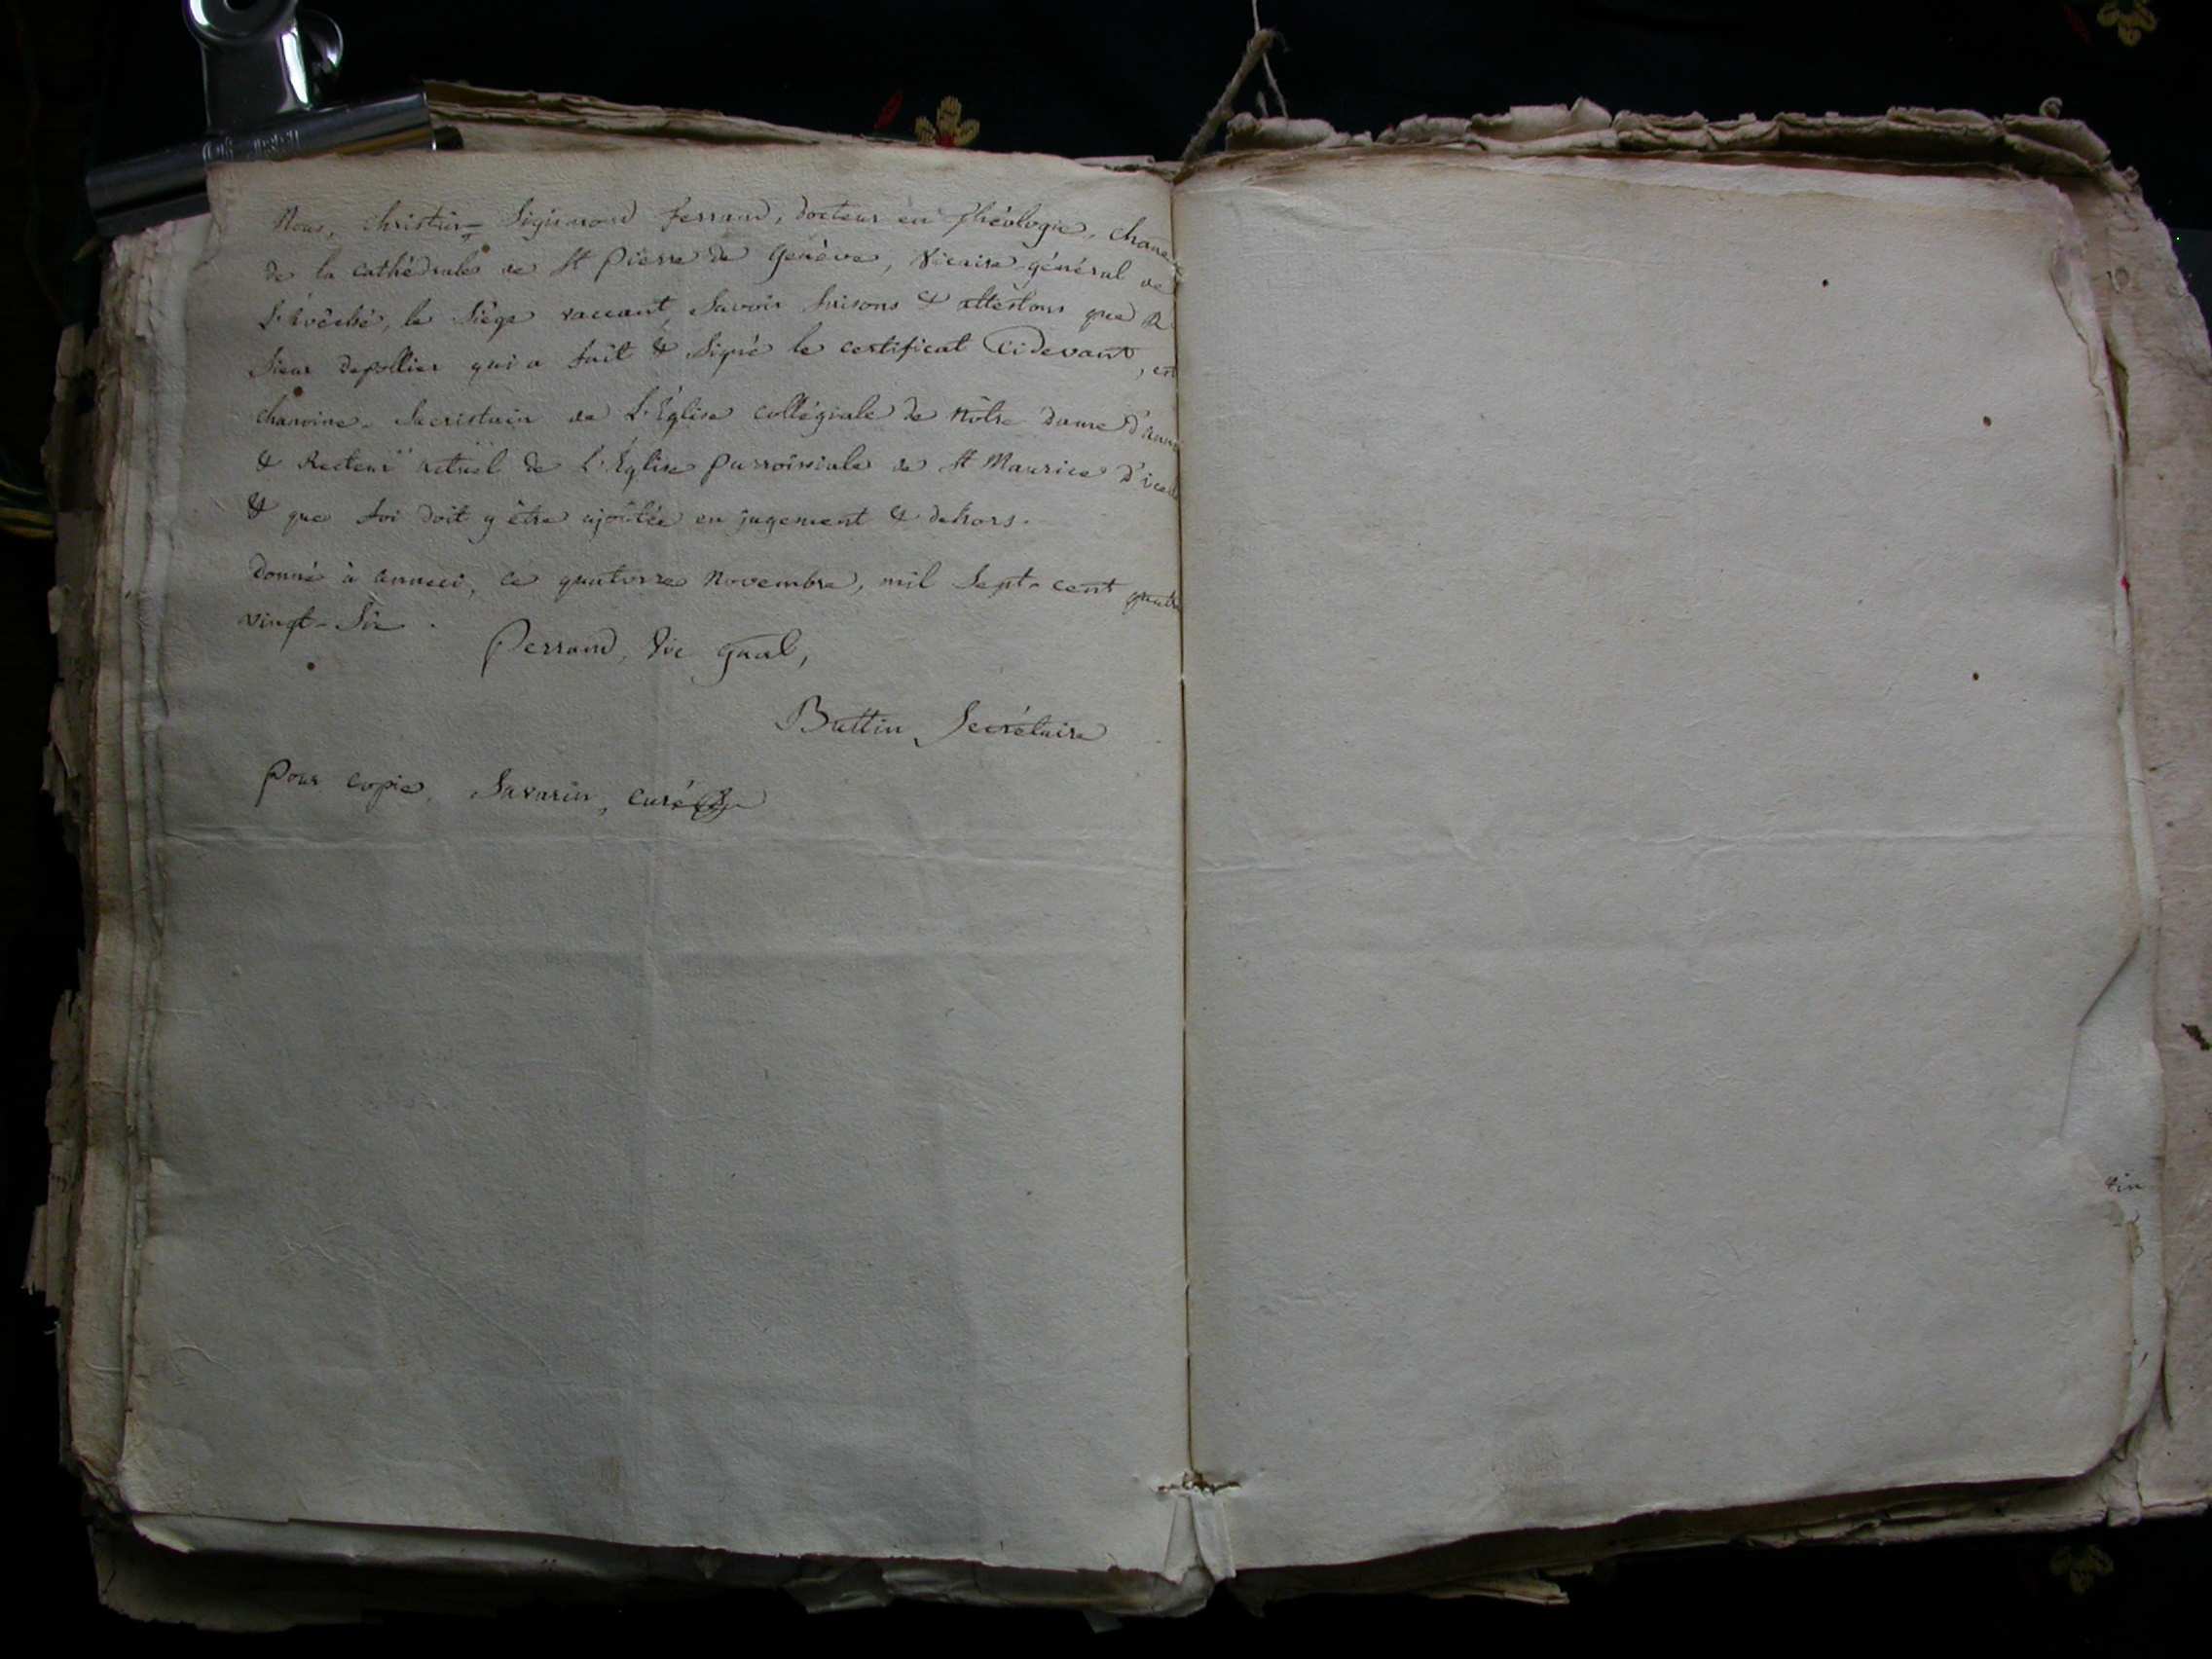 Nous, christin= Sigismond ferrand, docteur en théologie, chane
de la cathédrale de St Pierre de Genève, Vicaire-général de
L'évêché, le Siège vaccant, Savoir faisons & attestons que R
Sieur depollier qui a fait & Signé le certificat Cidevant, est
chanoine-Sacristain de L'Eglise collégiale de Nôtre dame d'ann
& Recteur actuel de L'Eglise parroissiale de St Maurice d'icel
& que foi doit y être ajoutée en jugement & dehors.
Donné à anneci, ce quatorze Novembre, mil Sept-cent quatre
vingt-Six.
Perrand, Vic gnal,
Battin Secrétaire
Pour copie, Savarin, curé
tin